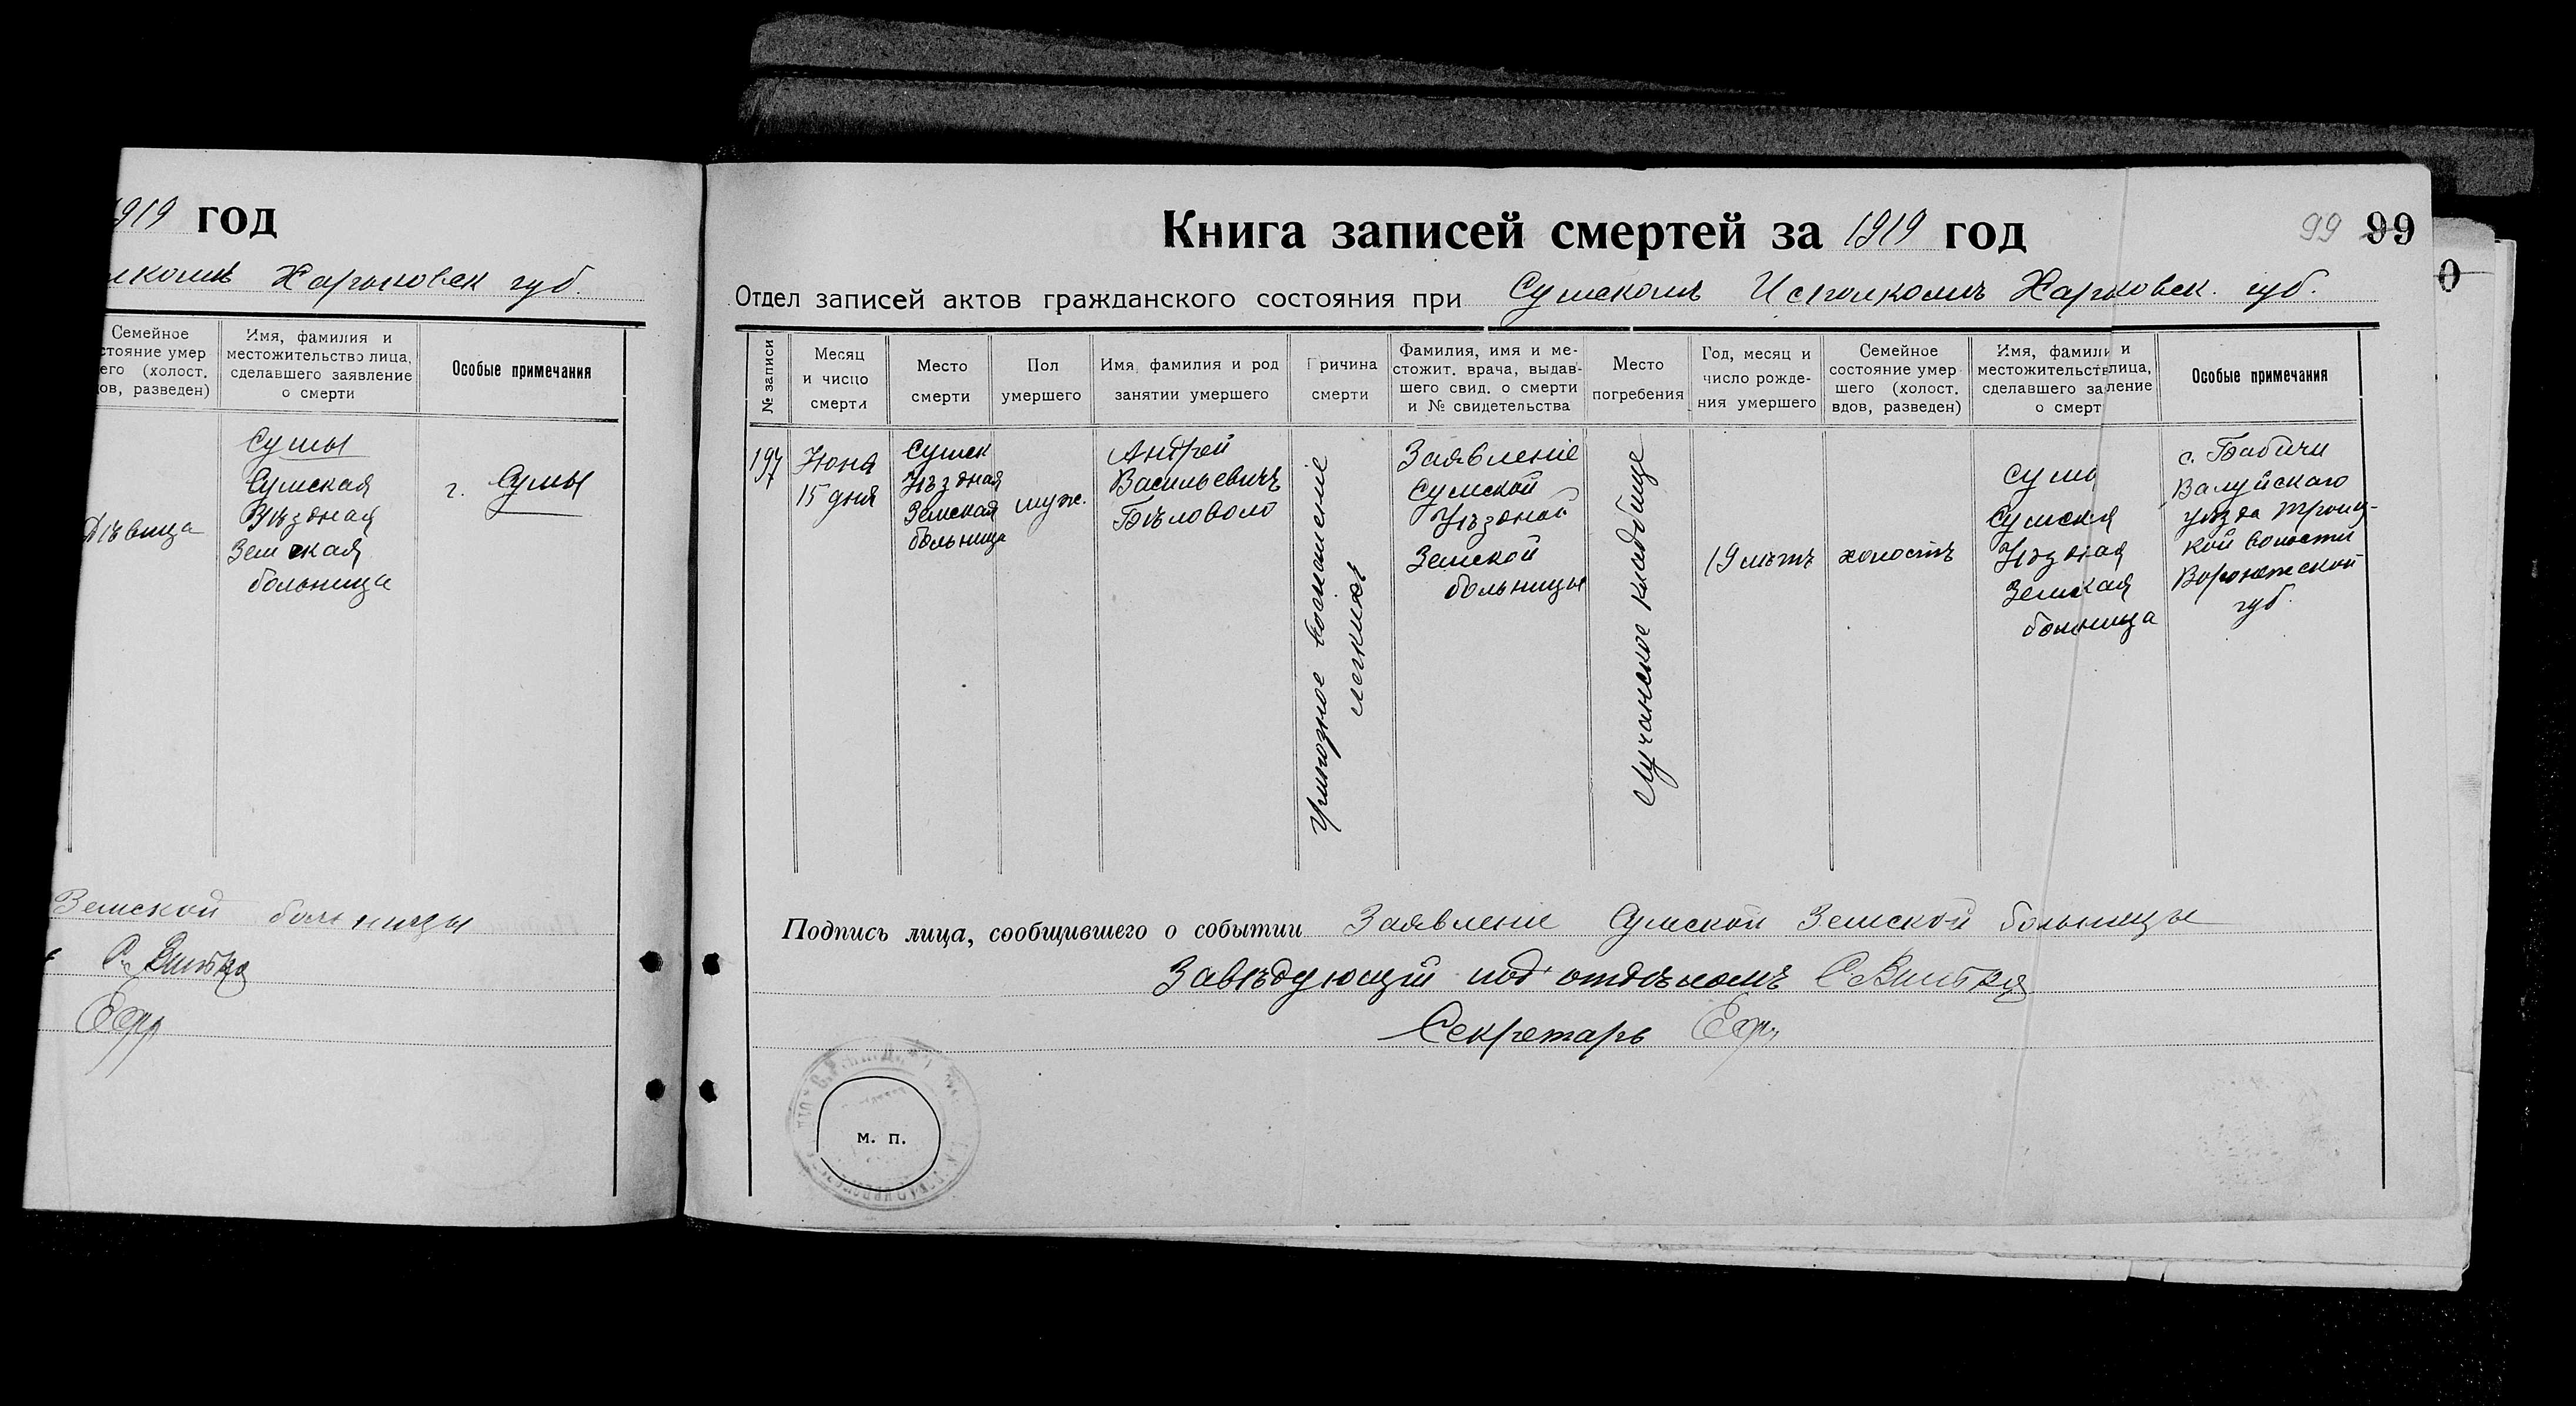 1919 год
Харьковск губ.
Семейное
стояние умер
его (холост.
ов, разведен)
Имя, фамилия и
местожительство лица,
сделавшего заявление
о смерти
Особые примечания
Дѣвица
Сумы
Сумская
Уѣздная
Земская
больница
г. Сумы
Земской больницы
Книга записей смертей за 1919 год
99 99
0
Отдел записей актов гражданского состояния при Сумском Исполкомѣ Харьковск. губ.
№ записи
Месяц
и число
смерти
Место
смерти
Пол
умершего
Имя, фамилия и род
занятии умершего
Причина
смерти
Фамилия, имя и ме-
стожит. врача, выдав-
шего свид. о смерти
и № свидетельства
Место
погребения
Год, месяц и
число рожде-
ния умершего
Семейное
состояние умер
шего (холост.
вдов, разведен)
Имя, фамили и
местожительств лица,
сделавшего заявление
о смерт
Особые примечания
197
Июня
15 дня
Сумск
Уѣздная
Земская
больница
муж.
Андрей
Васильевичъ
Бѣловол
Крупозное воспаление
легкихъ
Заявление
Сумской
Уѣздной
Земской
больницы
Лучанское кладбище
19 лѣтъ
холостъ
Сумы
Сумская
Уѣздная
Земская
больница
с. Бабичи
Валуйскаго
уѣзда Троиц-
кой волости
Воронежской
губ.
Подпись лица, сообщившего о событии Заявление Сумской Земской больницы
Завѣдующій под'отдѣломъ
Секретарь
м. п.